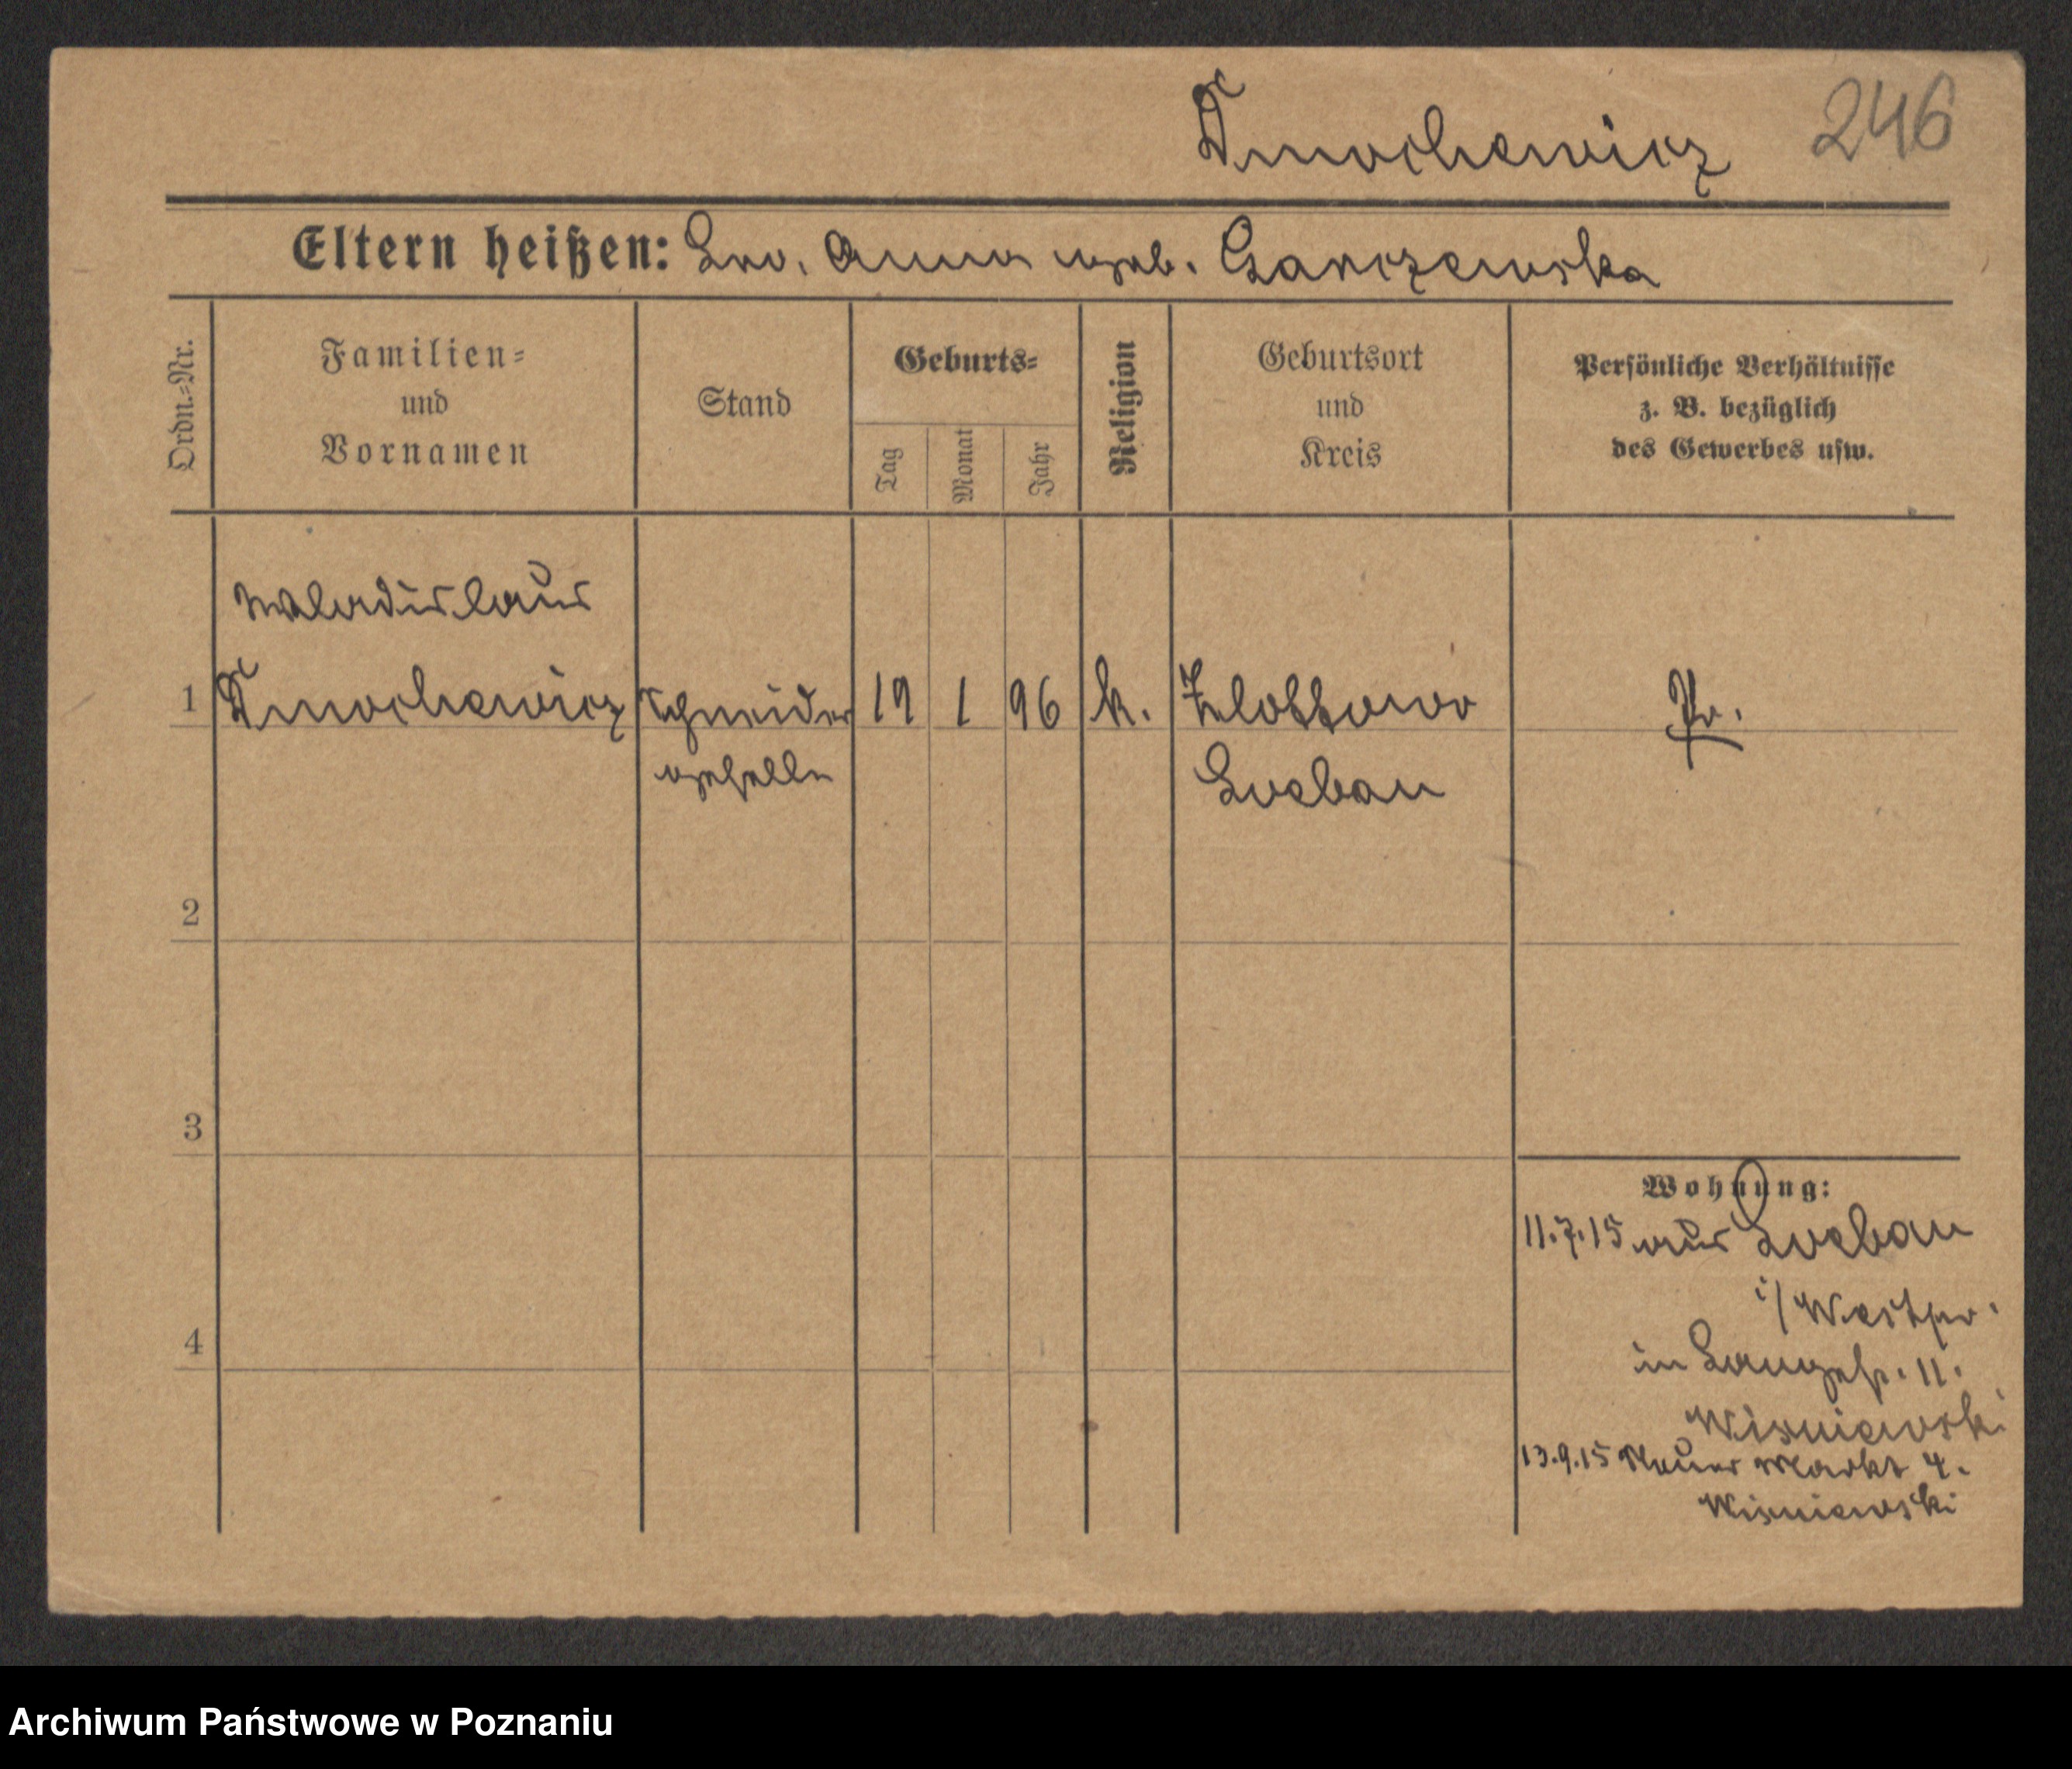 Dmochewicz 246
Eltern heißen: Leo. Anna geb. Garczewska
Ordn.-Nr.
Familien-
und
Vornamen
Stand
Geburts-
Tag
Monat
Jahr
Religion
Geburtsort
und
Kreis
Persönliche Verhältnisse
z. B. bezüglich
des Gewerbes usw.
Wladislaus
1 Dmochewicz Schneider 19 1 96 k. Zlottowo Pr.
geselle Loebau
2
3
Wohnung:
11.7.15 aus Loebau
i/Westpr.
4
in Langestr. 11.
Wisniewski
13.9.15 Neuer Markt 4.
Wisniewski
Archiwum Państwowe w Poznaniu